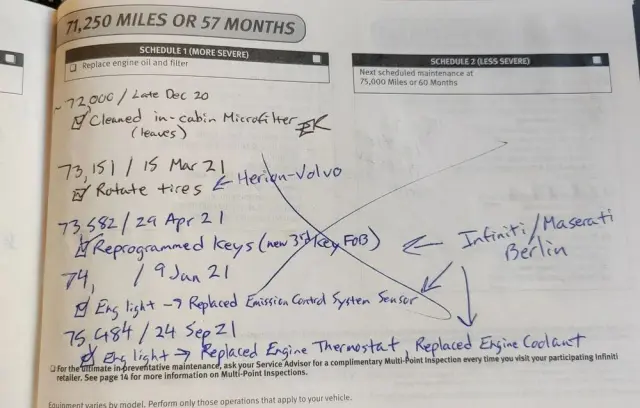 71,250 MILES OR 57 MONTHS
SCHEDULE 1 (MORE SEVERE)
Replace engine oil and filter
SCHEDULE 2 (LESS SEVERE)
Next scheduled maintenance at
75,000 Miles or 60 Months
~72,000 / Late Dec 20
Cleaned in-cabin Microfilter
(leaves)
73,151 / 15 Mar 21
Rotate tires ← Herion-Volvo
73,582 / 29 Apr 21
Reprogrammed keys (new 3rd key FOB) ← Infiniti/Maserati
Berlin
74, / 9 Jan 21
Eng light → Replaced Emission Control System Sensor
75,484 / 24 Sep 21
Eng light → Replaced Engine Thermostat, Replaced Engine Coolant
For the ultimate in preventative maintenance, ask your Service Advisor for a complimentary Multi-Point Inspection every time you visit your participating Infiniti
retailer. See page 14 for more information on Multi-Point Inspections.
Equipment varies by model. Perform only those operations that apply to your vehicle.